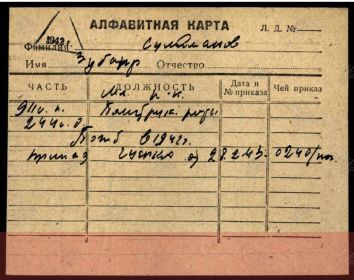 1942 г.
АЛФАВИТНАЯ КАРТА
Л. Д. №
Фамилия Сулейманов
Имя Зубаир Отчество
ЧАСТЬ ДОЛЖНОСТЬ Дата и № приказа Чей приказ
Мл. п-к
911 с. п. роты
244 с. д.
Погиб в 1942 г.
приказ от 28.2.43. 0240/